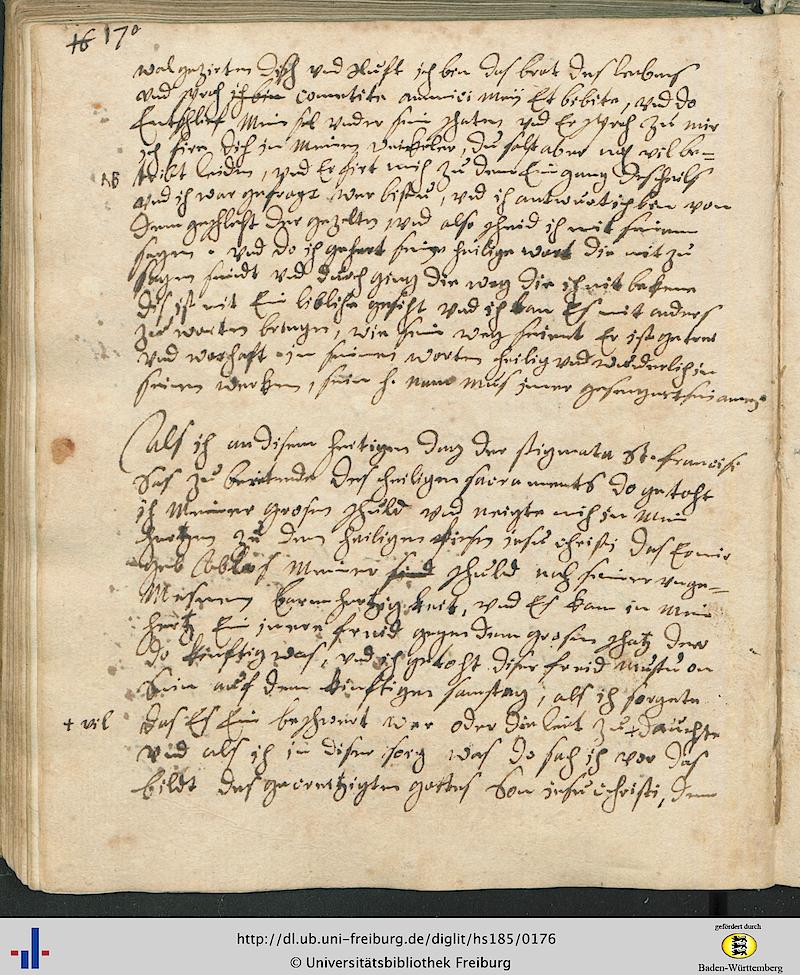 170
wol gezirten disch vnd Ruft ich ben das brot des lebens
vnd sprach ich bin comedite ammici Mey Et bibite, vnd do
Entschlief Mein sel vnder sein schaten vnd Er sprach zu mir
ich fire dich in Meinen weinkeler, du solst aber noch vil be=
NB triebt leiden, vnd Er firt mich zu dem Eingang des heils
vnd ich war gefragt wer bistu, vnd ich antwurt ich ben von
dem geschlecht der gezelten vnd also scheid ich mit seinem
segen. vnd do ich gehert seine heilige wort die nit zu
sagen seindt vnd durch ging die weg die ich nit bekene
dis ist mit Ein libliche gesicht vnd ich kan Es nit anders
zu worten brengen, wie sein weg seient Er ist getrew
vnd warhaft in seinen worten heilig vnd wunderlich in
seinen werken, sein h. nam mus imer gesengnet sei amen
Als ich an disem heitigen dag der stigmata St. francisi
Sas zu beritende des heiligen sacraments do gedoht
ich Meiner grosen schuld vnd neigte mich in Mein
hertzen zu dem heiligen fiesen jesu christi das Er mir
geb Ablas Meiner schuld nach seiner vnge=
Mesenen barmhertzigkeit, vnd Es kam in Mein
hertz Ein inere freid gegen dem grosen schatz der
do kinftig was, vnd ich gedoht diser freid mustu on
Sein auf dem kinftigen samstag, als ich sorgete
+ vil das Es Ein beschwert wer oder die leit zu + dauchte
vnd als ich in diser sorg was do sach ich vor das
bildt des gecreitzigten gottes Son jesu christi, dem
http://dl.ub.uni-freiburg.de/diglit/hs185/0176
© Universitätsbibliothek Freiburg
gefördert durch
Baden-Württemberg